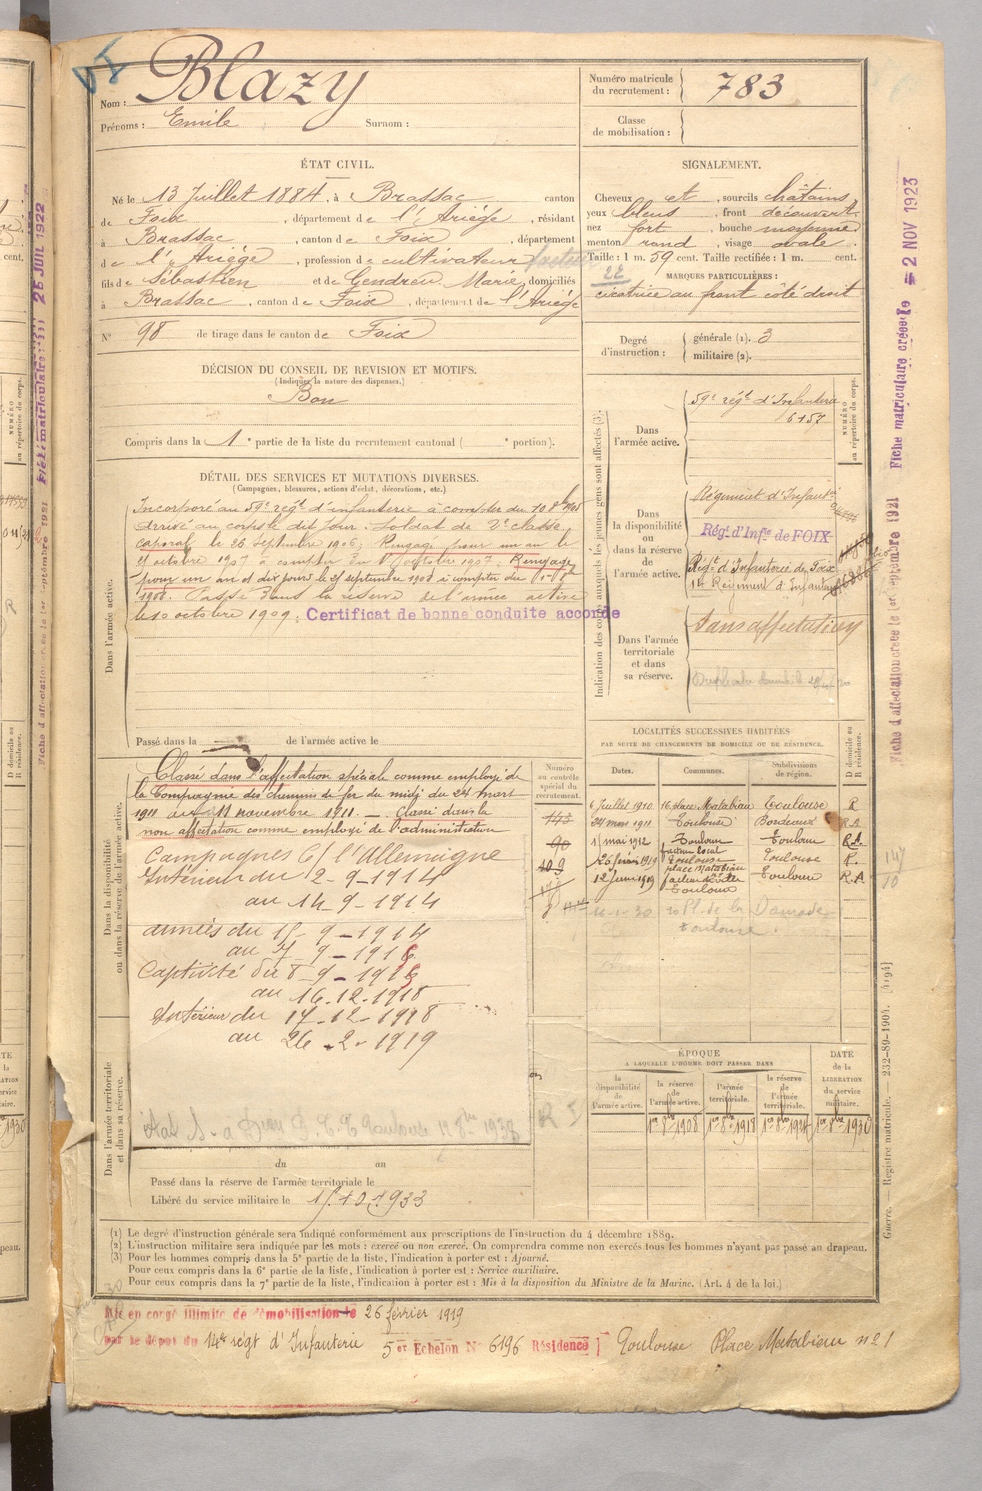 VI
Nom : Blazy
Prénoms : Emile Surnom :
Numéro matricule du recrutement : 783
Classe de mobilisation :
ÉTAT CIVIL.
Né le 13 Juillet 1884, à Brassac canton
de Foix, département de l'Ariége, résidant
à Brassac, canton de Foix, département
de l'Ariége, profession de cultivateur facteur
fils de Sébastien et de Gendreu Marie, domiciliés
à Brassac, canton de Foix, département de l'Ariége
N° 98 de tirage dans le canton de Foix
SIGNALEMENT.
Cheveux et, sourcils châtains
yeux bleus, front découvert
nez fort, bouche moyenne
menton rond, visage ovale
Taille : 1 m. 59 cent. Taille rectifiée : 1 m. cent.
22
MARQUES PARTICULIÈRES :
cicatrice au front côté droit
Degré d'instruction : générale (1). 3
militaire (2).
DÉCISION DU CONSEIL DE REVISION ET MOTIFS.
(Indiquer la nature des dispenses.)
Bon
Compris dans la 1e partie de la liste du recrutement cantonal ( e portion).
DÉTAIL DES SERVICES ET MUTATIONS DIVERSES.
(Campagnes, blessures, actions d'éclat, décorations, etc.)
Dans l'armée active.
Incorporé au 59e régt d'infanterie à compter du 10 8bre 1905
arrivé au corps le dit jour. Soldat de 2e classe
caporal le 26 Septembre 1906; Rengagé pour un an le
octobre 1907 à compter du octobre 1907; Rengagé
pour un an et dix jours le septembre 1908 à compter du 1er 8bre
1908. Passé dans la réserve de l'armée active
le 10 octobre 1909; Certificat de bonne conduite accordé
Passé dans la de l'armée active le
Indication des corps auxquels les jeunes gens sont affectés (3).
NUMÉRO au répertoire du corps.
Dans l'armée active.
59e régt d'Infanterie
6157
Dans la disponibilité ou dans la réserve de l'armée active.
Régiment d'Infant
Régt d'Infie de FOIX
Régt d'Infanterie de Foix
14e Régiment d'Infanterie
Dans l'armée territoriale et dans sa réserve.
Sans affectation
LOCALITÉS SUCCESSIVES HABITÉES
PAR SUITE DE CHANGEMENTS DE DOMICILE OU DE RÉSIDENCE.
Dates. Communes. Subdivisions de région. D domicile ou R résidence.
6 Juillet 1910 16 place Matabiau Toulouse Toulouse R
24 mars 1911 Bordeaux R.A
1 mai 1912 Toulouse facteur local Toulouse R.A.
26 février 1919 Toulouse place Matabiau Toulouse R.
12 Juin 1919 facteur Toulouse Toulouse R.A
Toulouse
Dans la disponibilité ou dans la réserve de l'armée active.
Numéro au contrôle spécial du recrutement.
109
Classé dans l'affectation spéciale comme employé de
la Compagnie des chemins de fer du midi du 24 mars
1911 au 11 novembre 1911. — Classé dans la
non affectation comme employé de l'administration
Campagnes C/ l'Allemagne
Intérieur du 2-9-1914
au 14-9-1914
armées du 15-9-1914
au 7-9-1916
Captivité du 8-9-1916
au 16-12-1918
Intérieur du 17-12-1918
au 26-2-1919
Dans l'armée territoriale et dans sa réserve.
du au
Passé dans la réserve de l'armée territoriale le
Libéré du service militaire le
ÉPOQUE
A LAQUELLE L'HOMME DOIT PASSER DANS
la disponibilité de l'armée active. la réserve de l'armée active. l'armée territoriale. la réserve de l'armée territoriale. DATE de la LIBÉRATION du service militaire.
1er 8bre 1908 1er 8bre 1918 1er 8bre 1924 1er 8bre 1930
(1) Le degré d'instruction générale sera indiqué conformément aux prescriptions de l'instruction du 4 décembre 1889.
(2) L'instruction militaire sera indiquée par les mots : exercé ou non exercé. On comprendra comme non exercés tous les hommes n'ayant pas passé au drapeau.
(3) Pour les hommes compris dans la 5e partie de la liste, l'indication à porter est : Ajourné.
Pour ceux compris dans la 6e partie de la liste, l'indication à porter est : Service auxiliaire.
Pour ceux compris dans la 7e partie de la liste, l'indication à porter est : Mis à la disposition du Ministre de la Marine. (Art. 4 de la loi.)
Mis en congé illimité de démobilisation le 26 février 1919
par le dépôt du 14e régt d'Infanterie 5er Echelon N° 6196 Résidence Toulouse Place Matabiau n° 1
Fiche d'affectation créée le 1er Septembre 1921 Fiche matriculaire créée le = 2 NOV 1923
Guerre. — Registre matricule. 232-89-1904. [4194]